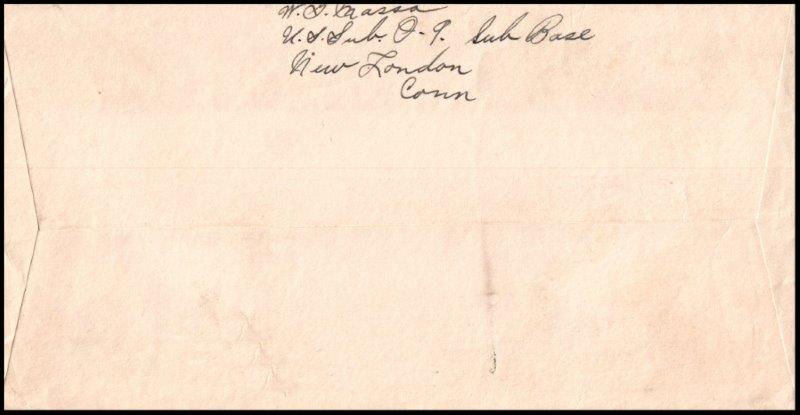 U.S. Sub. O-9. Sub Base
New London
Conn